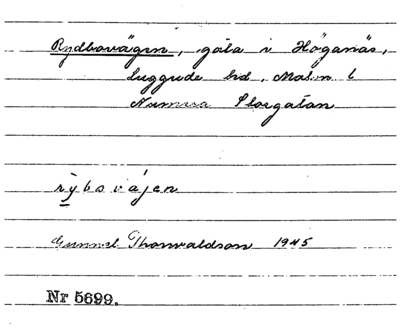 Rydbovägen, gata i Höganäs,
Luggude hd, Malm. l
Numera Storgatan
rybovä́jen
Gunnel Thorvaldson 1945
Nr 5699.